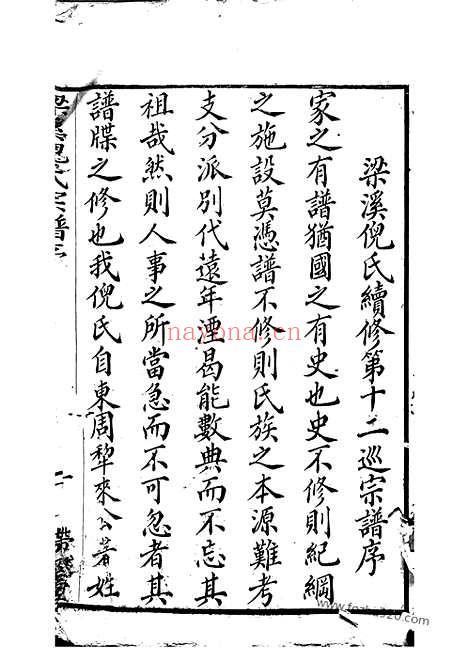 梁溪倪氏續修第十二巡宗譜序
家之有譜猶國之有史也史不修則紀綱
之施設莫憑譜不修則氏族之本源難考
支分派別代遠年湮曷能數典而不忘其
祖哉然則人事之所當急而不可忽者其
譜牒之修也我倪氏自東周犂來公著姓
倪氏宗譜序
nayona.cn